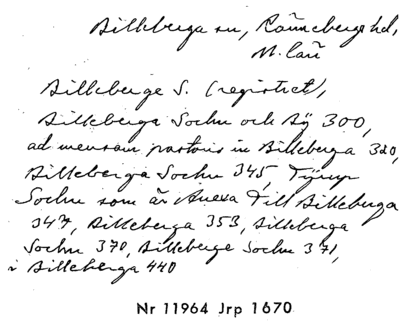 Billeberga sn, Rönnebergs hd,
M. län
Billeberge S. (registret),
Billeberga Sochn och By 300,
ad mensam pastoris in Billeberga 320,
Billeberga Sochn 345, Tirup
Sochn som är Anexa Till Billeberga
347, Billeberga 353, Billeberga
Sochn 370, Billeberge Sochn 371,
i Billeberga 440
Nr 11964 Jrp 1670